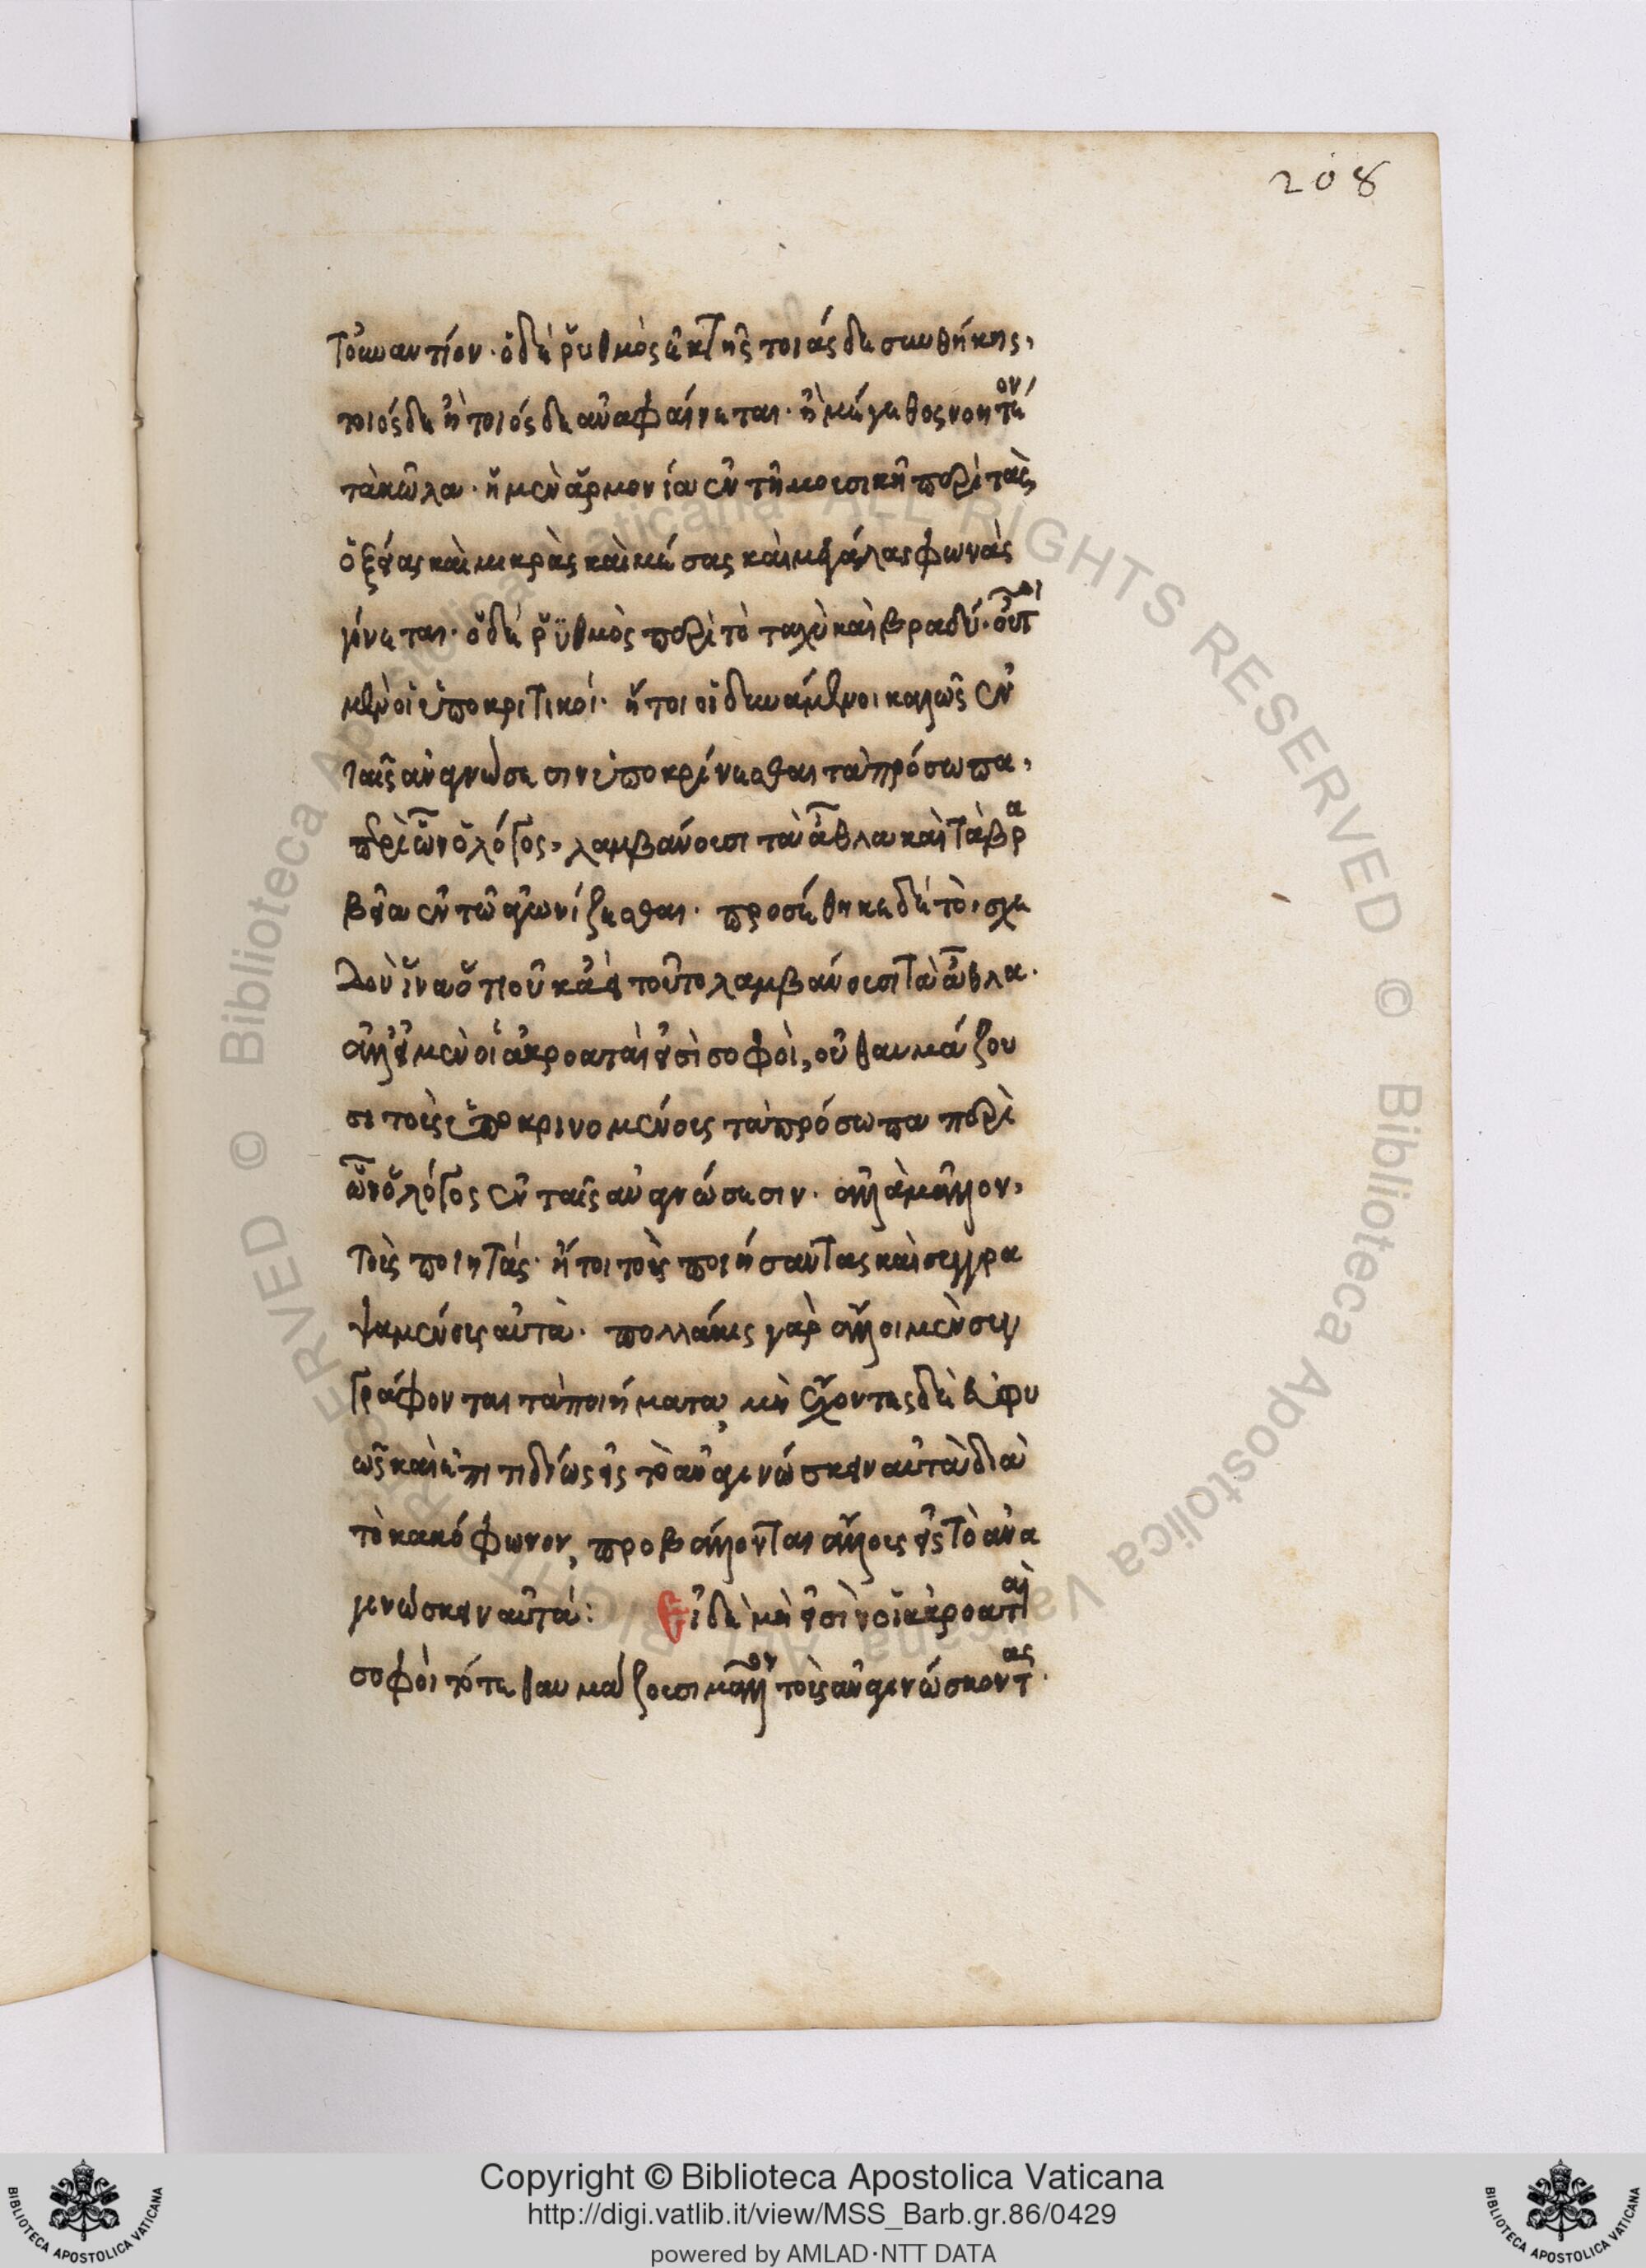 208
τοὐναντίον· ὁ δὲ ῥυθμὸς ἐκ τῆς τοιάσδε συνθήκης,
τοιόσδε ἢ τοιόσδε ἀναφαίνεται· ἢ μέγεθος νοητέον
τὰ κῶλα· ἡ μὲν ἁρμονία ἐν τῆ μουσικῆ περὶ τὰς
ὀξείας καὶ μικρὰς καὶ μέσας καὶ μεγάλας φωνὰς
γίνεται· ὁ δὲ ῥϋθμὸς περὶ τὸ ταχὺ καὶ βραδύ· οὗτοι
μὲν οἱ ὑποκριτικοί· ἤτοι οἱ δυνάμενοι καλῶς ἐν
ταῖς ἀναγνώσεσιν ὑποκρίνεσθαι τὰ πρόσωπα,
περὶ ὧν ὁ λόγος, λαμβάνουσι τὰ ἆθλα καὶ τὰ βρα
βεῖα ἐν τῶ ἀγωνίζεσθαι· προσέθηκε δὲ τὸ, σχε
δὸν ἵνα ὅτι οὐκ ἀεὶ τοῦτο λαμβάνουσι τὰ ἆθλα·
ἀλλ' εἰ μὲν οἱ ἀκροαταὶ εἰσὶ σοφοὶ, οὐ θαυμάζου
σι τοὺς ὑποκρινομένους τὰ πρόσωπα περὶ
ὧν ὁ λόγος ἐν ταῖς ἀναγνώσεσιν· ἀλλὰ μᾶλλον,
τοὺς ποιητάς· ἤτοι τοὺς ποιήσαντας καὶ συγγρα
ψαμένους αὐτὰ· πολλάκις γὰρ ἄλλοι μὲν συγ
γράφονται τὰ ποιήματα, μὴ ἔχοντες δὲ εὐφυ
ῶς καὶ ἐπιτηδείως εἰς τὸ ἀναγινώσκειν αὐτὰ διὰ
τὸ κακόφωνον, προβάλλονται ἄλλους εἰς τὸ ἀνα
γινώσκειν αὐτά: Εἰ δὲ μὴ εἰσὶν οἱ ἀκροαταὶ
σοφοὶ τότε θαυμάζουσι μᾶλλον τοὺς ἀναγινώσκοντας·
Copyright © Biblioteca Apostolica Vaticana
http://digi.vatlib.it/view/MSS_Barb.gr.86/0429
powered by AMLAD·NTT DATA